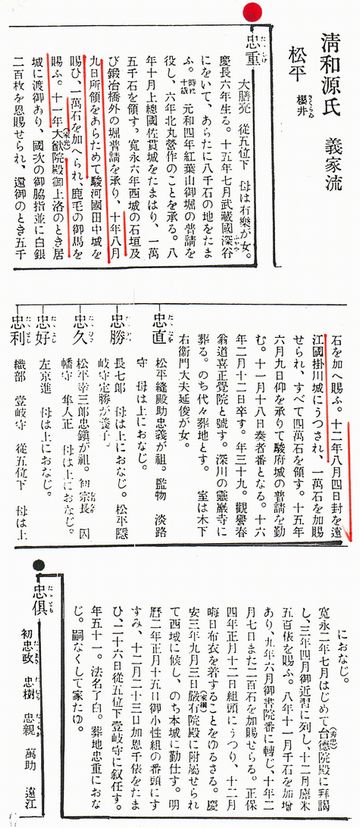 清和源氏 義家流
松平 櫻井
忠重
大膳亮 從五位下 母は有樂が女。
慶長六年生る。十五年七月武藏國深谷
にをいて、あらたに八千石の地をたま
ふ。時に十歲 元和四年紅葉山御堀の普請を
役し、六年北丸營作のことを承る。八
年十月上總國佐貫城をたまはり、一萬
五千石を領す。寬永六年西城の石垣及
び鍛冶橋外の堀普請を承り、十年八月
九日所領をあらためて駿河國田中城を
賜ひ、一萬石を加へられ、鹿毛の御馬を
賜ふ。十一年大猷院殿御上洛のとき居
城に渡御あり、國次の御脇指並に白銀
二百枚を恩賜せられ、還御のとき五千
石を加へ賜ふ。十二年八月四日封を遠
江國掛川城にうつされ、一萬石を加賜
せられ、すべて四萬石を領す。十五年
六月九日仰を承りて駿府城の普請を勤
む。十一月十八日奏者番となる。十六
年二月十二日卒す。年三十九。觀譽春
翁道喜正覺院と號す。深川の靈巖寺に
葬る。のち代々葬地とす。 室は木下
右衞門大夫延俊が女。
忠直
松平縫殿助忠義が祖。監物 淡路
守 母は上におなじ。
忠勝
長七郎 母は上におなじ。松平隱
岐守定勝が養子。
忠久
松平幸三郎忠鎭が祖。初宗長 因
幡守 隼人正 母は上におなじ。
忠好
左京進 母は上におなじ。
忠利
織部 壹岐守 從五位下 母は上
におなじ。
寬永二年七月はじめて台德院殿に拜謁
し、三年四月御近習に列し、十二月廩米
五百俵を賜ふ。八年十一月千石を加增
あり、九年六月御書院番に轉じ、十年二
月七日また二百石を加賜せらる。正保
四年正月十二日組頭にうつり、十二月
晦日布衣を着することをゆるさる。慶
安三年九月三日嚴有院殿に附屬せられ
て西城に候し、のち本城に勤仕す。明
曆二年正月十五日御小性組の番頭にす
すみ、十二月二十三日加恩千俵をたま
ひ、二十六日從五位下壹岐守に敍任す。
年五十一。法名了白。葬地忠重におな
じ。嗣なくして家たゆ。
忠俱
初忠政 忠樹 忠親 萬助 遠江